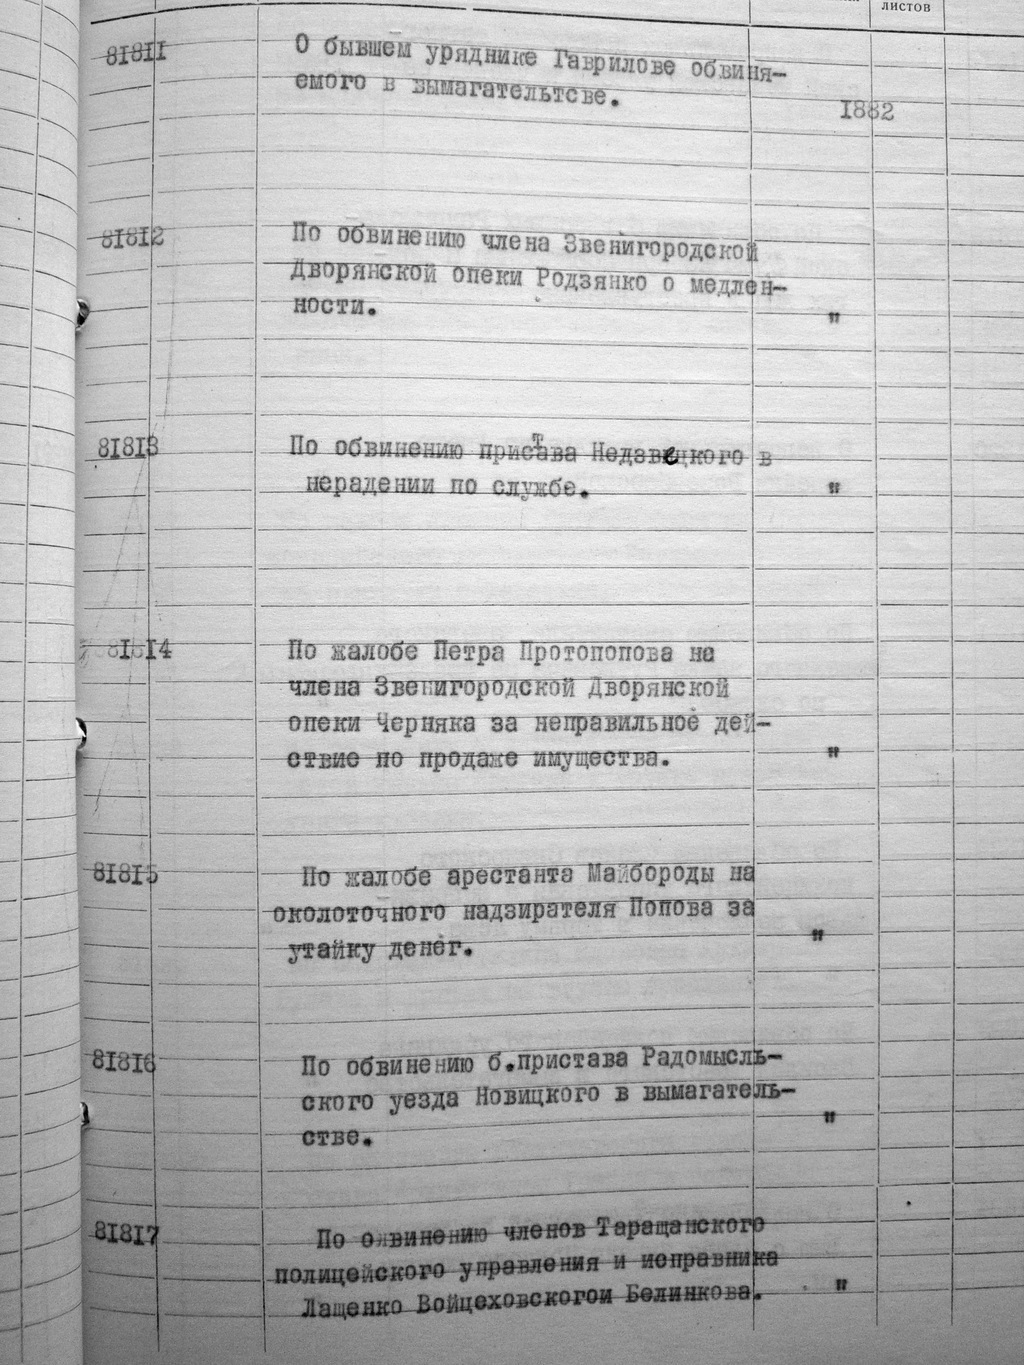 листов
81811 О бывшем уряднике Гаврилове обвиня-
емого в вымагательтсве.
1882
81812 По обвинению члена Звенигородской
Дворянской опеки Родзянко о медлен-
ности. "
81813 По обвинению пристава Недзвецкого в
нерадении по службе. "
81814 По жалобе Петра Протопопова на
члена Звенигородской Дворянской
опеки Черняка за неправильное дей-
ствие по продаже имущества. "
81815 По жалобе арестанта Майбороды на
околоточного надзирателя Попова за "
утайку денег.
81816 По обвинению б.пристава Радомысль-
ского уезда Новицкого в вымагатель-
стве. "
81817 По овинению членов Таращанского
полицейского управления и исправника
Лащенко Войцеховскогои Белинкова. "